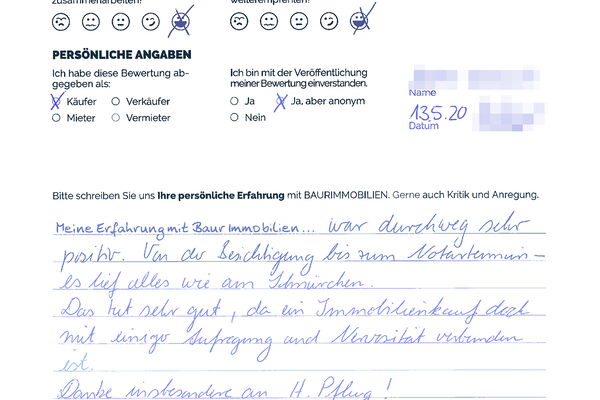 zusammenarbeiten? weiterempfehlen?
PERSÖNLICHE ANGABEN
Ich habe diese Bewertung ab-
gegeben als:
Käufer Verkäufer
Mieter Vermieter
Ich bin mit der Veröffentlichung
meiner Bewertung einverstanden.
Ja Ja, aber anonym
Nein
Name
13.5.20
Datum
Bitte schreiben Sie uns Ihre persönliche Erfahrung mit BAURIMMOBILIEN. Gerne auch Kritik und Anregung.
Meine Erfahrung mit Baur Immobilien... war durchweg sehr
positiv. Von der Besichtigung bis zum Notartermin –
es lief alles wie am Schnürchen.
Das tut sehr gut, da ein Immobilienkauf doch
mit einiger Aufregung und Nervosität verbunden
ist.
Danke insbesondere an H. Pflug!